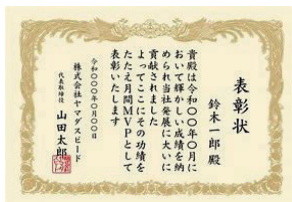 表彰状
鈴木一郎殿
貴殿は令和〇〇年〇月に
おいて輝かしい成績を納
められ当社発展に大いに
貢献されました
よってここにその功績を
たたえ月間MVPとして
表彰いたします
令和〇〇〇年〇月〇〇日
株式会社ヤマダスピード
代表取締役
山田太郎